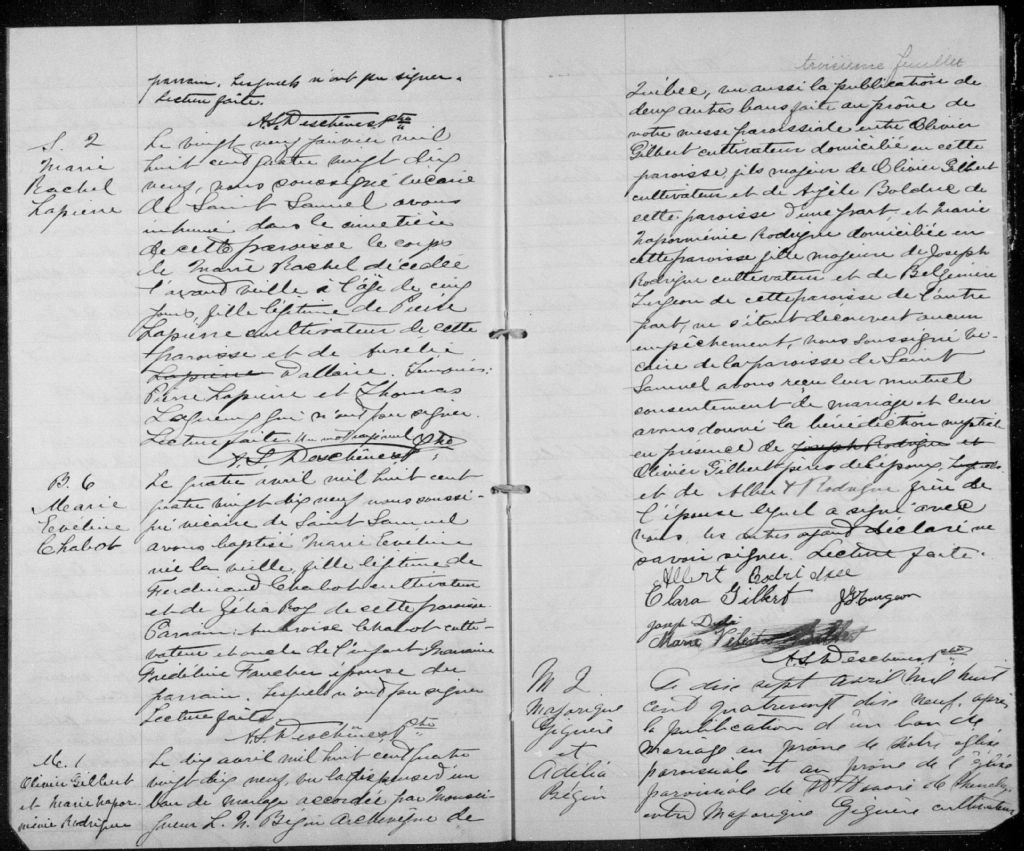 parrain. Lesquels n'ont pu signer.
Lecture faite.
A. L. Deschênes, Ptre
S. 2
Marie
Rachel
Lapierre
Le vingt neuf janvier mil
huit cent quatre vingt dix
neuf, nous soussigné vicaire
de Saint Samuel avons
inhumé dans le cimetière
de cette paroisse le corps
de Marie Rachel décédée
l'avant veille à l'âge de cinq
jours, fille légitime de Pierre
Lapierre cultivateur de cette
paroisse et de Aurélie
Lapierre Dallaire. Témoins:
Pierre Lapierre et Thomas
qui n'ont pu signer.
Lecture faite. Un mot rayé nul
A. L. Deschênes, Ptre
B. 6
Marie
Eveline
Chabot
Le quatre avril mil huit cent
quatre vingt dix neuf, nous soussi-
gné vicaire de Saint Samuel
avons baptisé Marie Eveline
née la veille, fille légitime de
Ferdinand Chabot cultivateur
et de Zélia Roy de cette paroisse.
Parrain: Ambroise Chabot culti-
vateur et oncle de l'enfant Marraine
Frédéline Faucher épouse du
parrain. Lesquels n'ont pu signer
Lecture faite.
A. L. Deschênes, Ptre
M. 1
Olivier Gilbert
et Marie Napor-
ménie Rodrigue
Le dix avril mil huit cent quatre
vingt dix neuf, vu la dispense d'un
ban de mariage accordée par Monsei-
gneur L. N. Bégin Archevêque de
troisième feuillet
Québec, vu aussi la publication de
deux autres bans faite au prône de
notre messe paroissiale entre Olivier
Gilbert cultivateur domicilié en cette
paroisse, fils majeur de Olivier Gilbert
cultivateur et de Azèle Bolduc de
cette paroisse d'une part, et Marie
Naporménie Rodrigue domiciliée en
cette paroisse fille majeure de Joseph
Rodrigue cultivateur et de
Turgeon de cette paroisse de l'autre
part, ne s'étant découvert aucun
empêchement, nous soussigné vi-
caire de la paroisse de Saint
Samuel avons reçu leur mutuel
consentement de mariage et leur
avons donné la bénédiction nuptiale
en présence de Joseph Rodrigue et
Olivier Gilbert père de l'époux,
et de Albert Rodrigue frère de
l'épouse lequel a signé avec
nous, les autres ayant déclaré ne
savoir signer. Lecture faite.
Albert Rodridue
Clara Gilbert J G Turgeon
Joseph
Marie
A. L. Deschênes, Ptre
M 2
Majorique
Giguère
et
Adélia
Bégin
Le dix sept avril mil huit
cent quatrevingt dix neuf, après
la publication d'un ban de
mariage au prône de notre église
paroissiale et au prône de l'église
paroissiale de St Honoré de Shenley
entre Majorique Giguère cultivateur